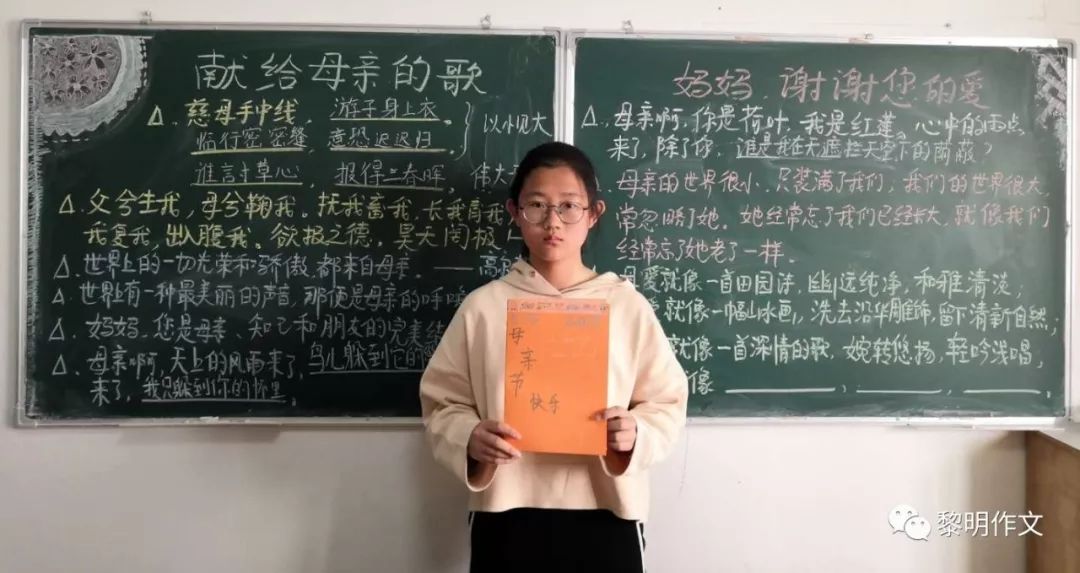 献给母亲的歌
△. 慈母手中线, 游子身上衣。
临行密密缝, 意恐迟迟归。
以小见大
谁言寸草心, 报得三春晖。 伟大
△. 父兮生我, 母兮鞠我。抚我畜我, 长我育我
我复我, 出入腹我。欲报之德, 昊天罔极
△. 世界上的一切光荣和骄傲, 都来自母亲。——高
△. 世界上有一种最美丽的声音, 那便是母亲的呼唤
△. 妈妈, 您是母亲, 知己和朋友的完美结
△. 母亲啊, 天上的风雨来了, 鸟儿躲到它的
来了, 我只躲到你的怀里。
妈妈, 谢谢您的爱
△. 母亲啊, 你是荷叶, 我是红莲。心中的雨点
来了, 除了你, 谁是我在无遮拦天空下的荫蔽?
母亲的世界很小, 只装满了我们, 我们的世界很大,
常忽略了她。她经常忘了我们已经长大, 就像我们
经常忘了她老了一样。
母爱就像一首田园诗, 幽远纯净, 和雅清淡;
就像一幅山水画, 洗去沿华雕饰, 留下清新自然;
就像一首深情的歌, 婉转悠扬, 轻吟浅唱;
像 , , 。
母亲节
快乐
黎明作文